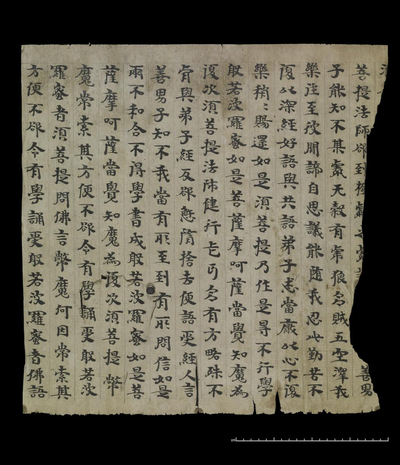 菩提法師欲到極劇之 善男
子能知不其處无穀有虎狼多賊五空澤我
樂往至彼間諦自思議能隨我忍此勤苦不
復以深經好語與共語弟子悉當厭以心不復
樂稍〻賜還如是須菩提乃作是㝵不行學
般若波羅蜜如是菩薩摩呵薩當覺知魔為
復次須菩提法師健行乞丐多有方略殊不
肯與弟子經及欲懈墮捨去便語受經人言
善男子知不我當有所至到有所問信如是
兩不和合不得學書成般若波羅蜜如是菩
薩摩呵薩當覺知魔為復次須菩提弊
魔常索其方便不欲令有學誦受般若波
羅蜜者須菩提問佛言弊魔何因常索其
方便不欲令有學誦受般若波羅蜜者佛語